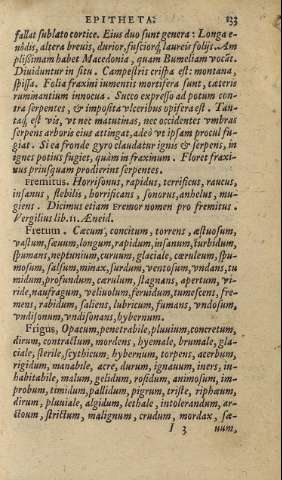 EPITHETA. 133
fallat sublato cortice. Eius duo sunt genera: Longa e-
nodis, altera breuis, durior, fusciorq́, laureis folijs. Am
plissimam habet Macedonia, quam Bumeliam vocāt.
Diuiduntur in situ. Campestris crispa est: montana,
spissa. Folia fraxini iumentis mortifera sunt, cæteris
ruminantium innocua. Succo expresso ad potum con
tra serpentes, & imposita vlceribus opifera est. Tan-
taq́; est vis, vt nec matutinas, nec occidentes vmbras
serpens arboris eius attingat, adeò vt ipsam procul fu-
giat. Si ea fronde gyro claudatur ignis & serpens, in
ignes potiùs fugiet, quàm in fraxinum. Floret fraxi-
nus priusquam prodierint serpentes.
Fremitus. Horrisonus, rapidus, terrificus, raucus,
insanus, flebilis, horrificans, sonorus, anhelus, mu-
giens. Dicimus etiam Fremor nomen pro fremitus.
Vergilius lib. 11. Æneid.
Fretum. Cæcum, concitum, torrens, æstuosum,
vastum, sæuum, longum, rapidum, insanum, turbidum,
spumans, neptunium, curuum, glaciale, cæruleum, spu-
mosum, salsum, minax, surdum, ventosum, vndans, tu
midum, profundum, cærulum, stagnans, apertum, vi-
ride, naufragum, veliuolum, feruidum, tumescens, fre-
mens, rabidum, saliens, lubricum, fumans, vndosum,
vndisonum, vndisonans, hybernum.
Frigus, Opacum, penetrabile, pluuium, concretum,
dirum, contractum, mordens, hyemale, brumale, gla-
ciale, sterile, scythicum, hybernum, torpens, acerbum,
rigidum, manabile, acre, durum, ignauum, iners, in-
habitabile, malum, gelidum, rosidum, animosum, im-
probum, timidum, pallidum, pigrum, triste, riphæum,
dirum, pluuiale, algidum, lethale, intolerandum, ar-
ctoum, strictum, malignum, crudum, mordax, sæ-
I 3 uum,